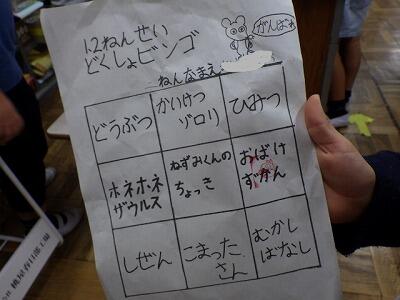 1.2ねんせい
どくしょビンゴ
がんばれ
ねんなまえ
どうぶつ
かいけつ
ゾロリ
ひみつ
ホネホネ
ザウルス
ねずみくんの
ちょっき
おばけ
ずかん
しぜん
こまった
さん
むかし
ばなし